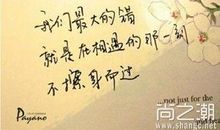 我们最大的错
就是在相遇的那一刻
不擦身而过
Payano
...not just for the
尚之潮
www.shangc.net